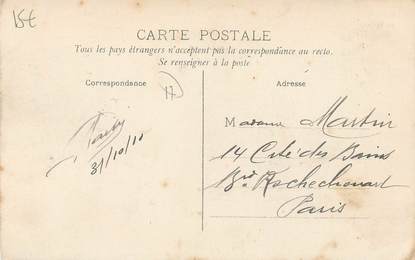 15€
CARTE POSTALE
Tous les pays étrangers n'acceptent pas la correspondance au recto.
Se renseigner à la poste
Correspondance
Adresse
31/10/10
Madame Martin
14 Cité des Bains
Bd Rochechouart
Paris